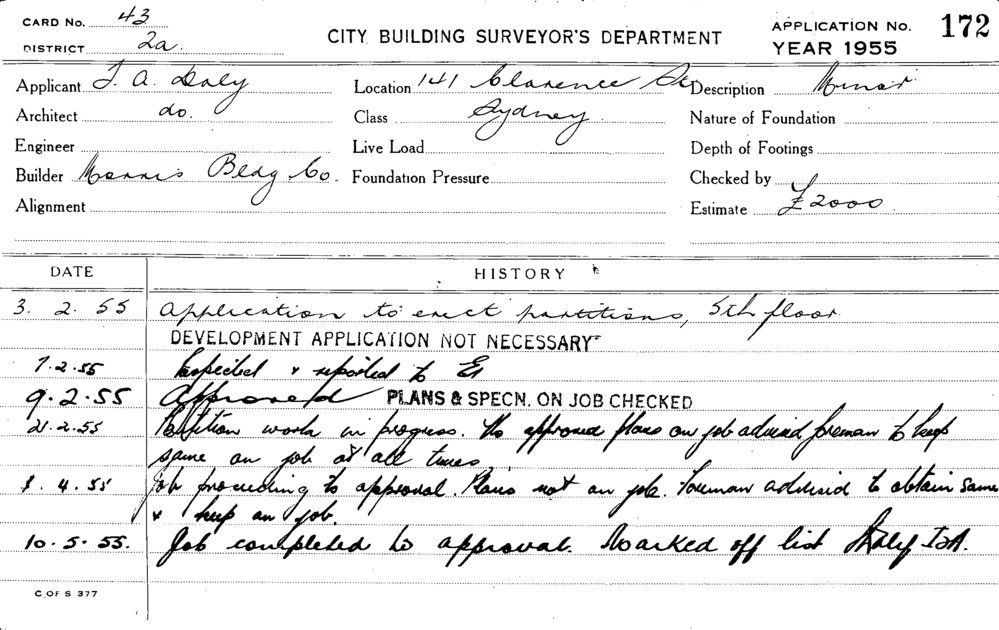 CARD No. 43
DISTRICT 2a.
CITY BUILDING SURVEYOR'S DEPARTMENT
APPLICATION No. 172
YEAR 1955
Applicant J. A. Daly
Location 141 Clarence St
Description Minor
Architect do.
Class Sydney
Nature of Foundation
Engineer
Live Load
Depth of Footings
Builder Morris Bldg Co.
Foundation Pressure
Checked by
Alignment
Estimate £2000
DATE HISTORY
3. 2. 55 Application to erect partitions, 5th floor
DEVELOPMENT APPLICATION NOT NECESSARY
7.2.55 Inspected & reported to
9.2.55 Approved PLANS & SPECN. ON JOB CHECKED
21.2.55 Partition work in progress. No approved plans on job advised foreman to keep
same on job at all times
4.55 Job proceeding to approval. Plans not on job. Foreman advised to obtain same
& keep on job.
10.5.55. Job completed to approval. Marked off list
C OF S 377